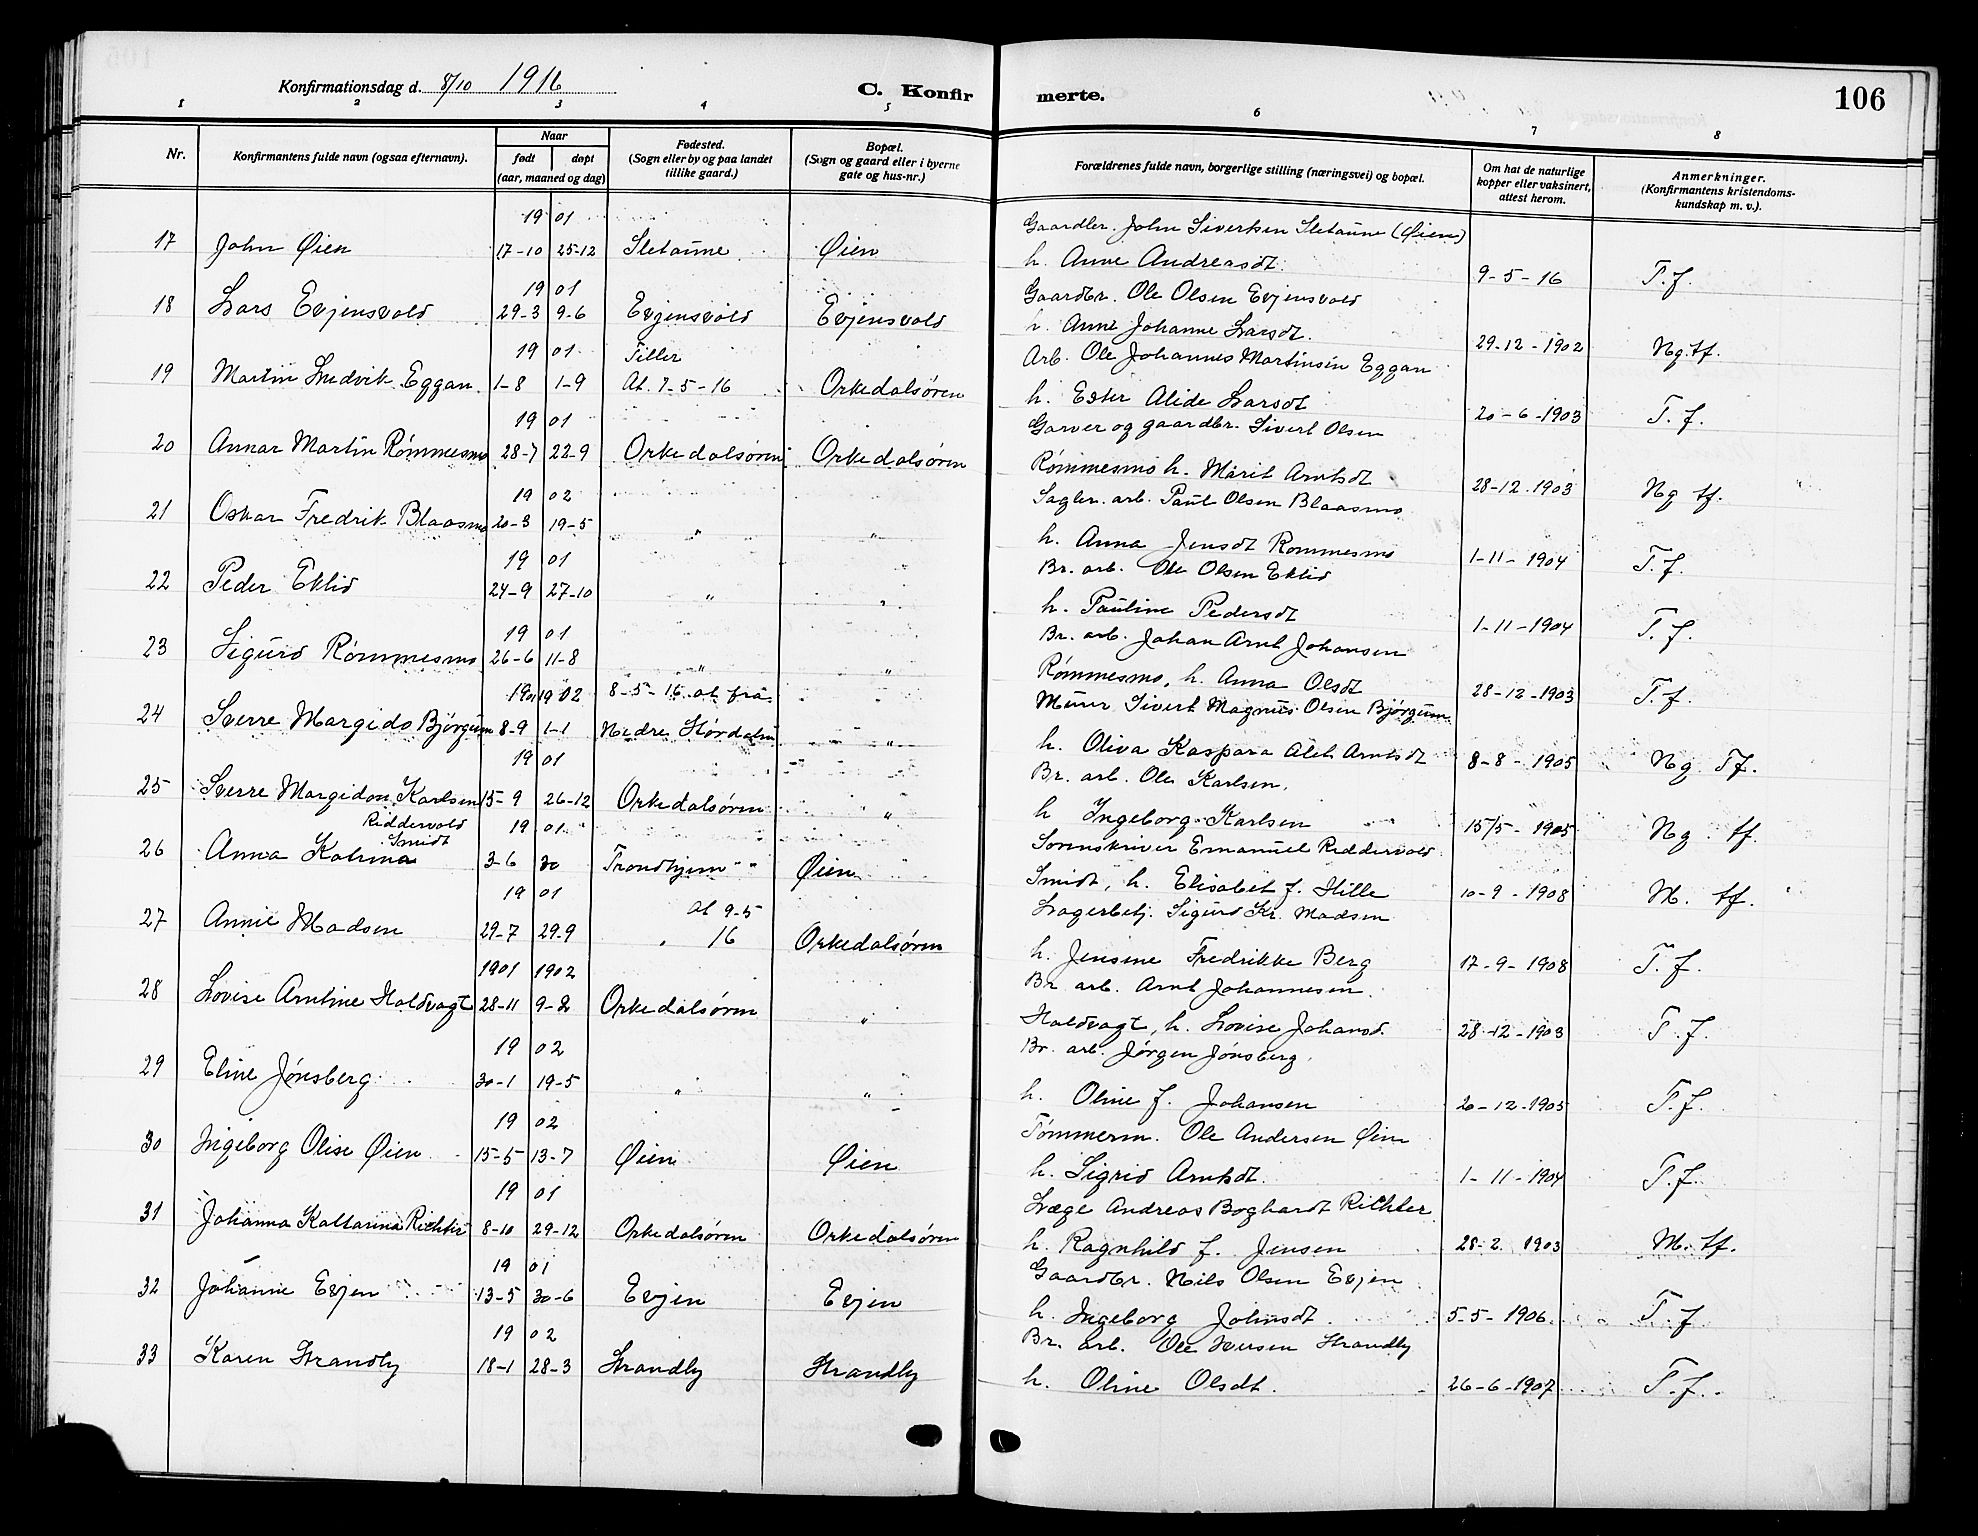 Konfirmationsdag d. 8/10 1916
C. Konfir merte.
106
1 2 3 4 5 6 7 8
Nr.
Konfirmantens fulde navn (ogsaa efternavn).
Naar
født døpt
(aar, maaned og dag)
Fødested.
(Sogn eller by og paa landet
tillike gaard.)
Bopæl.
(Sogn og gaard eller i byerne
gate og hus-nr.)
Forældrenes fulde navn, borgerlige stilling (næringsvei) og bopæl.
Om hat de naturlige
kopper eller vaksinert,
attest herom.
Anmerkninger.
(Konfirmantens kristendoms-
kundskap m. v.).
19 01 Gaardbr. John Sivertsen Sletaune (Øien)
17 John Øien 17-10 25-12 Sletaune Øien h. Anne Andreasdt. 9-5-16 T.f.
19 01 Gaardbr. Ole Olsen Evjensvold
18 Lars Evjensvold 29-3 9-6 Evjensvold Evjensvold h. Anne Johanne Larsdt. 29-12-1902 Ng. tf.
19 01 Tiller Arb. Ole Johannes Martinsen Eggan
19 Martin Ludvik Eggan 1-8 1-9 At. 7-5-16 Orkedalsøren h. Ester Alide Larsdt 20-6-1903 T.f.
19 01 Garver og gaardbr. Sivert Olsen
20 Annar Martin Rømmesmo 28-7 22-9 Orkedalsøren Orkedalsøren Rømmesmo h. Marit Arntsdt 28-12-1903 Ng tf.
19 02 Sagbr. arb. Paul Olsen Blaasmo
21 Oskar Fredrik Blaasmo 20-3 19-5 " " h. Anna Jensdt Rommesmo 1-11-1904 T.f.
19 01 Br. arb. Ole Olsen Eklid
22 Peder Eklid 24-9 27-10 " " h. Pauline Pedersdt 1-11-1904 T.f.
19 01 Br. arb. Johan Arnt Johansen
23 Sigurd Rømmesmo 26-6 11-8 " " Rømmesmo, h. Anna Olsdt 28-12-1903 T.f.
1901 1902 8-5-16 at fra Murer Sivert Magnus Olsen Bjørgum
24 Sverre Margido Bjørgum 8-9 1-1 Nedre Stördalen " h. Oliva Kaspara Alet Arntsdt 8-8-1905 Ng. Tf.
19 01 Br. arb. Ole Karlsen.
25 Sverre Margidon Karlsen 15-9 26-12 Orkedalsøren " h Ingeborg Karlsen 15/5-1905 Ng. tf.
Riddervold
Smidt 19 01 Sorenskriver Emanuel Riddervold
26 Anna Katrina 3-6 30 Trondhjem Øien Smidt, h. Elisabet f. Hille 10-9-1908 M. tf.
19 01 at 9-5 Lagerbetj. Sigurd Kr. Madsen
27 Annie Madsen 29-7 29-9 " 16 Orkedalsøren h. Jensine Fredrikke Berg 17-9-1908 T.f.
1901 1902 Br. arb. Arnt Johannesen
28 Lovise Arntine Holdvagt 28-11 9-2 Orkedalsøren " Holdvagt, h. Lovise Johansd. 28-12-1903 T.f.
19 02 Br. arb. Jørgen Jønsberg.
29 Eline Jønsberg 30-1 19-5 " " h. Oline f. Johansen 20-12-1905 T.f.
19 02 Tømmerm. Ole Andersen Øien
30 Ingeborg Olise Øien 15-5 13-7 Øien Øien h. Sigrid Arntsdt. 1-11-1904 T.f.
19 01 Læge Andreas Boghardt Richter
31 Johanna Kattarina Richter 8-10 29-12 Orkedalsøren Orkedalsøren h. Ragnhild f. Jensen 28-2 1903 M. tf.
19 01 Gaardbr. Nils Olsen Evjen
32 Johanne Evjen 13-5 30-6 Evjen Evjen h. Ingeborg Johnsdt. 5-5-1906 T.f
19 02 Br. arb. Ole Iversen Strandby
33 Karen Strandby 18-1 28-3 Strandby Strandby h. Oline Olsdt. 26-6-1907 T.f.